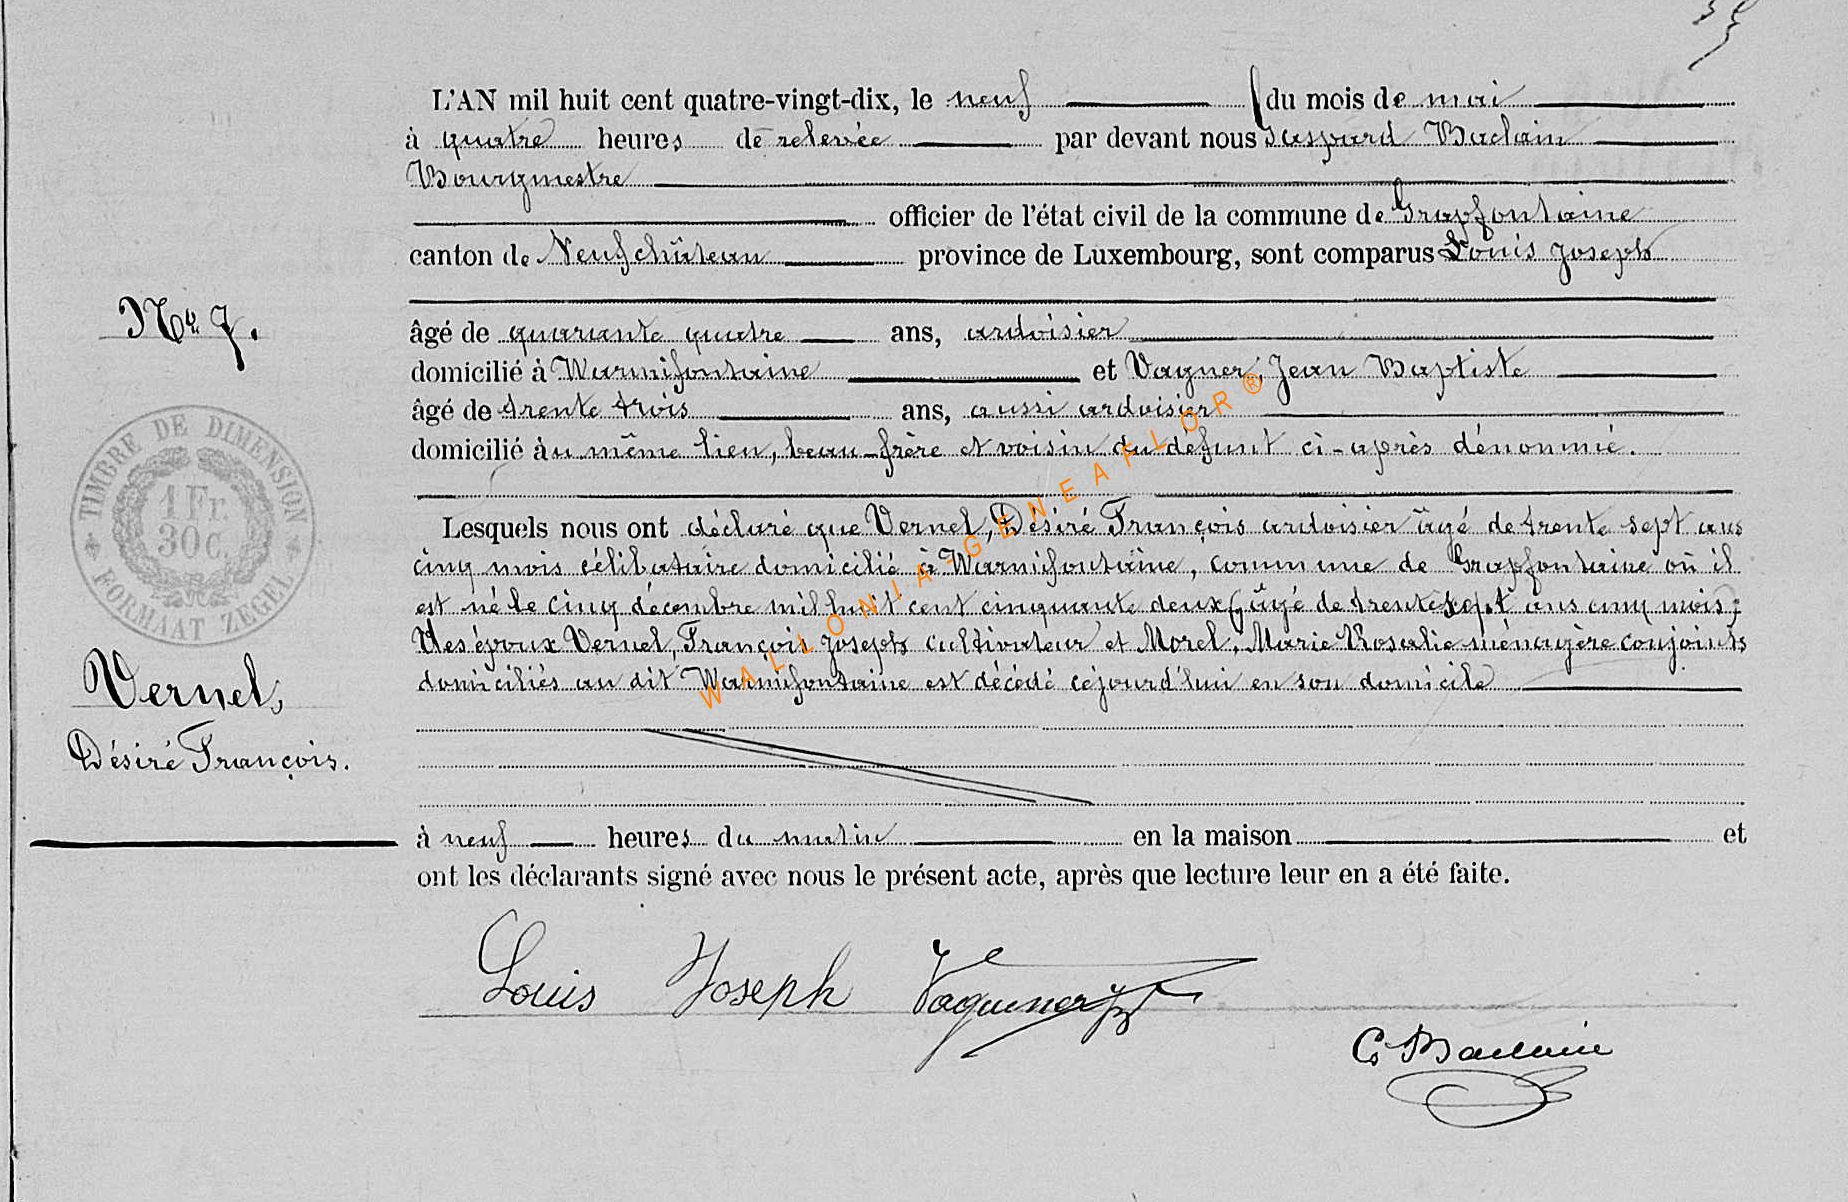 L'AN mil huit cent quatre-vingt-dix, le neuf du mois de mai
à quatre heures de relevée par devant nous Gaspard Baclain
Bourgmestre
officier de l'état civil de la commune de Grapfontaine
canton de Neufchâteau province de Luxembourg, sont comparus Louis Joseph
N° 7.
âgé de quarante quatre ans, ardoisier
domicilié à Warmifontaine et Vagner, Jean Baptiste
âgé de trente trois ans, aussi ardoisier
domicilié au même lieu, beau-frère et voisin du défunt ci-après dénommé.
TIMBRE DE DIMENSION
1 Fr.
30 C.
FORMAAT ZEGEL
Lesquels nous ont déclaré que Vernel, Désiré François ardoisier âgé de trente sept ans
cinq mois célibataire domicilié à Warmifontaine, commune de Grapfontaine où il
est né le cinq décembre mil huit cent cinquante deux, âgé de trente sept ans cinq mois,
des époux Vernel, François Joseph cultivateur et Morel, Marie Rosalie ménagère conjoints
domiciliés au dit Warmifontaine est décédé cejourd'hui en son domicile
Vernel,
Désiré François.
à neuf heures du matin en la maison et
ont les déclarants signé avec nous le présent acte, après que lecture leur en a été faite.
Louis Joseph Vaguener JB
G Baclain
WALLONIA-GENEAFLOR®